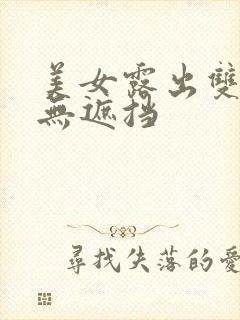 美女露出雙
無遮挡
尋找失落的愛